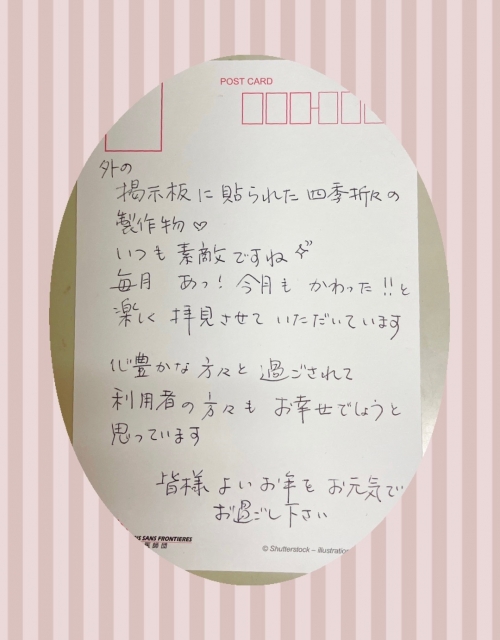 POST CARD
外の
掲示板に貼られた四季折々の
製作物♡
いつも素敵ですね
毎月 あっ!今月もかわった!!と
楽しく拝見させていただいています
心豊かな方々と過ごされて
利用者の方々もお幸せでしょうと
思っています
皆様よいお年をお元気で
お過ごし下さい
SANS FRONTIERES
医師団
© Shutterstock – illustration